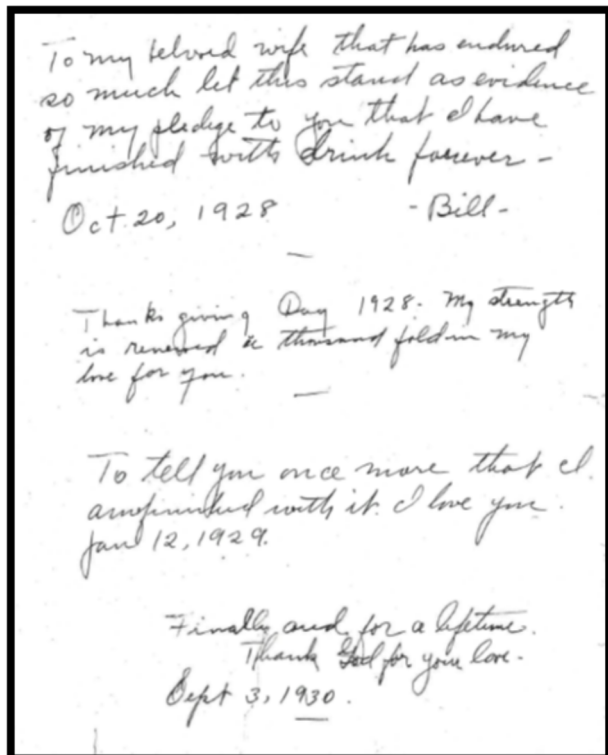 To my beloved wife that has endured
so much let this stand as evidence
of my pledge to you that I have
finished with drink forever -
Oct. 20, 1928 - Bill -
Thanks giving Day 1928. My strength
is renewed a thousand fold in my
love for you.
To tell you once more that I
am finished with it. I love you.
Jan 12, 1929.
Finally and for a lifetime.
Thank God for your love.
Sept 3, 1930.